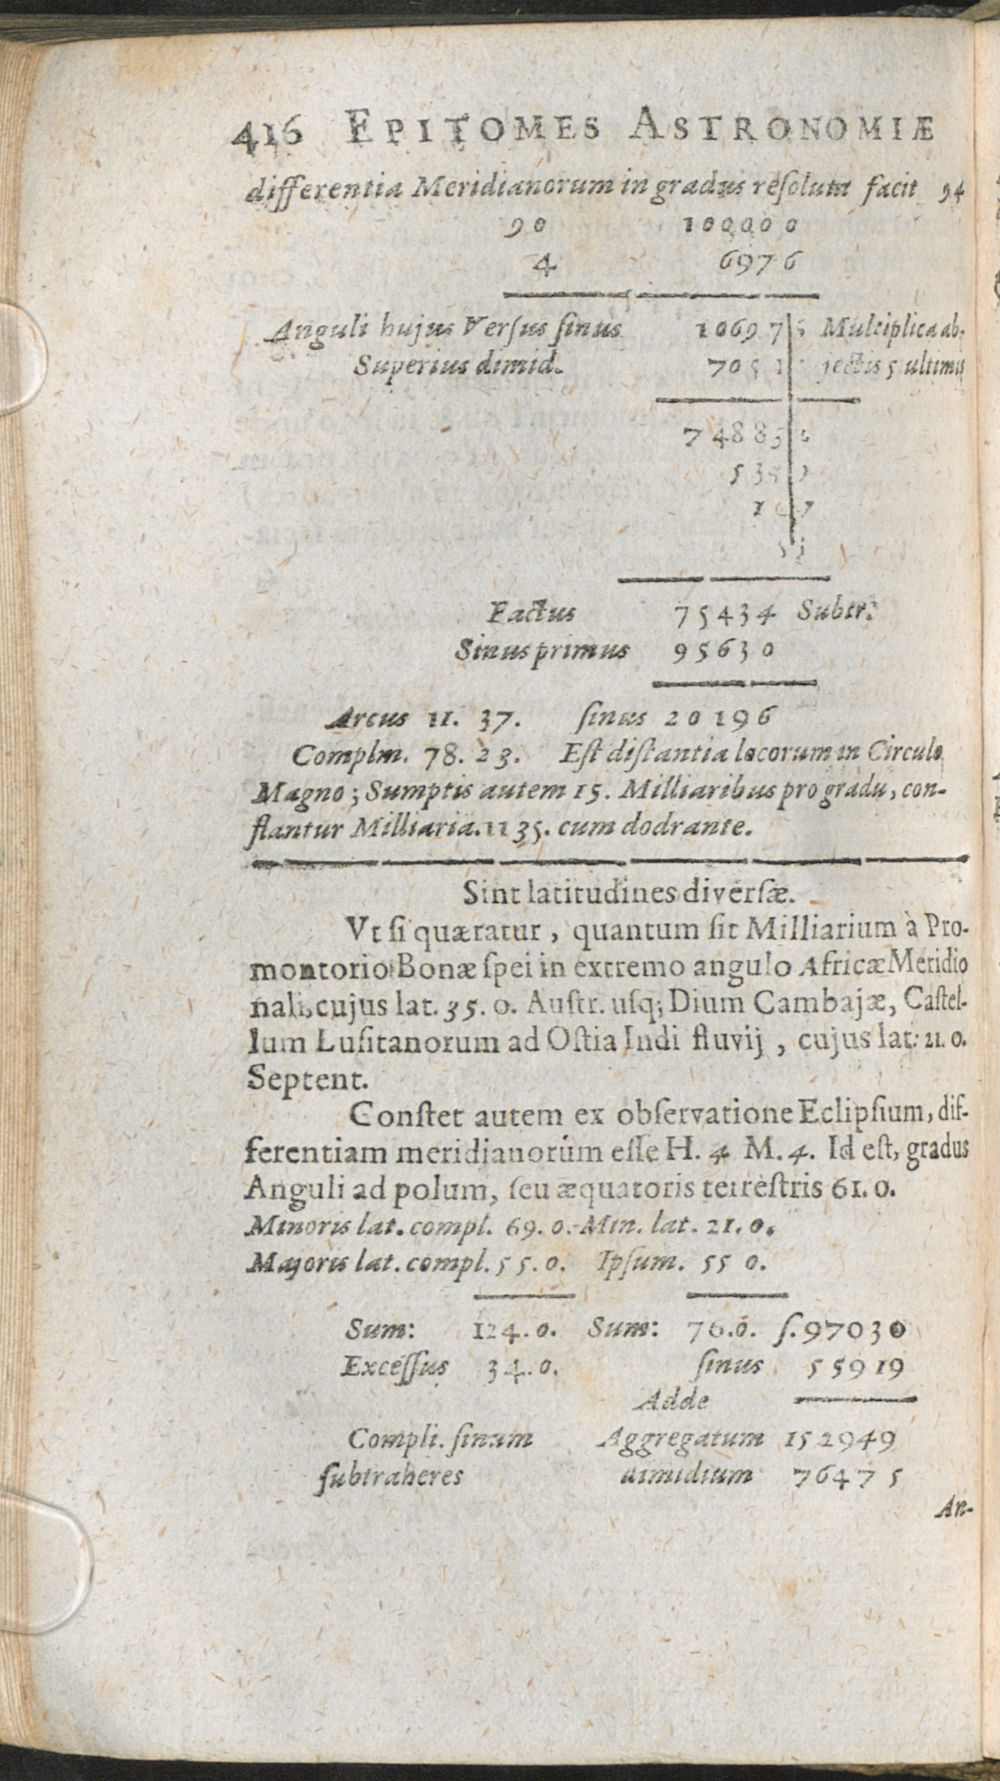 416 EPITOMES ASTRONOMIÆ
differentia Meridianorum in gradus resoluta facit 94
90 100000
4 6976
Anguli hujus Versus sinus 10697|6 Multiplica ab-
Superius dimid. 705 jectis 5 ultimis
74885
Factus 75434 Subtr:
Sinus primus 95630
Arcus 11. 37. sinus 20196
Complm. 78. 23. Est distantia locorum in Circulo
Magno; Sumptis autem 15. Milliaribus pro gradu, con-
flantur Milliaria. 1135. cum dodrante.
Sint latitudines diversæ.
Vt si quæratur, quantum sit Milliarium à Pro-
montorio Bonæ spei in extremo angulo Africæ Meridio
nali, cujus lat. 35. 0. Austr. usq; Dium Cambajæ, Castel-
lum Lusitanorum ad Ostia Indi fluvij, cujus lat. 21. 0.
Septent.
Constet autem ex observatione Eclipsium, dif-
ferentiam meridianorúm esse H. 4 M. 4. Id est, gradus
Anguli ad polum, seu æquatoris terrestris 61. 0.
Minoris lat. compl. 69. 0. Min. lat. 21. 0.
Majoris lat. compl. 55. 0. Ipsum. 55 0.
Sum: 124. 0. Sum: 76. 0. s. 97030
Excessus 34. 0. sinus 55919
Adde
Compli. sinum Aggregatum 152949
subtraheres dimidium 76475
An-